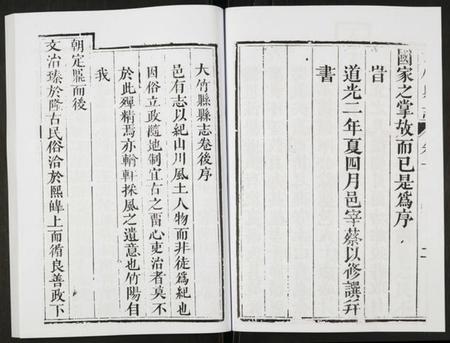 國家之掌故而已是爲序
旹
道光二年夏四月邑宰蔡以修譔幷
書
大竹縣縣志卷後序
邑有志以紀山川風土人物而非徒爲紀也
因俗立政隨地制宜古之畱心吏治者莫不
於此殫精焉亦輶軒採風之遺意也竹陽自
我
朝定鼎而後
文治臻於隆古民俗洽於熙皞上而循良善政下